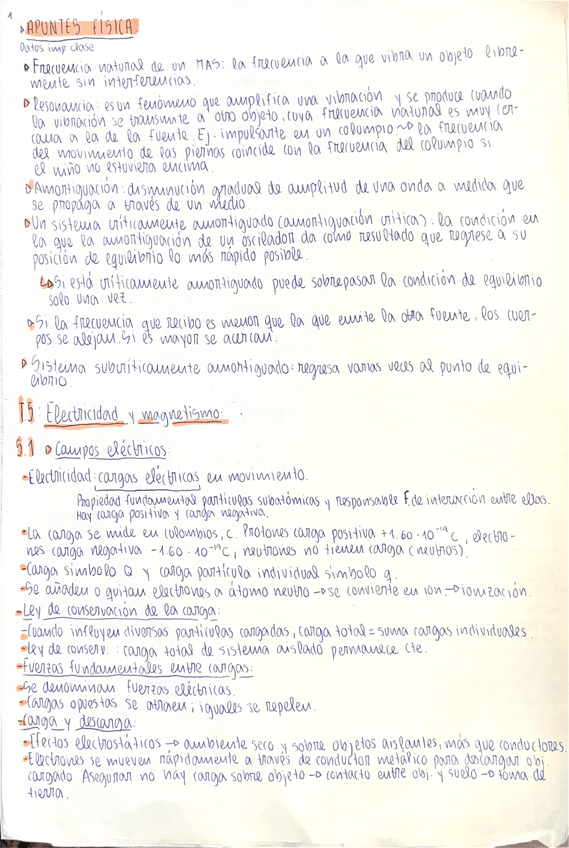 1
APUNTES FÍSICA
Datos imp. clase
Frecuencia natural de un MAS: la frecuencia a la que vibra un objeto libre-
mente sin interferencias.
Resonancia: es un fenómeno que amplifica una vibración y se produce cuando
la vibración se transmite a otro objeto, cuya frecuencia natural es muy cer-
cana a la de la fuente. Ej. impulsarte en un columpio → la frecuencia
del movimiento de las piernas coincide con la frecuencia del columpio si
el niño no estuviera encima.
Amortiguación: disminución gradual de amplitud de una onda a medida que
se propaga a través de un medio.
Un sistema críticamente amortiguado (amortiguación crítica): la condición en
la que la amortiguación de un oscilador da como resultado que regrese a su
posición de equilibrio lo más rápido posible.
Si está críticamente amortiguado puede sobrepasar la condición de equilibrio
solo una vez.
Si la frecuencia que recibo es menor que la que emite la otra fuente, los cuer-
pos se alejan. Si es mayor se acercan.
Sistema subcríticamente amortiguado: regresa varias veces al punto de equi-
librio.
T.5: Electricidad y magnetismo:
5.1 Campos eléctricos:
Electricidad: cargas eléctricas en movimiento.
Propiedad fundamental partículas subatómicas y responsable F. de interacción entre ellas.
Hay carga positiva y carga negativa.
La carga se mide en culombios, C. Protones carga positiva +1.60·10⁻¹⁹ C, electro-
nes carga negativa -1.60·10⁻¹⁹ C, neutrones no tienen carga (neutros).
Carga símbolo Q y carga partícula individual símbolo q.
Se añaden o quitan electrones a átomo neutro → se convierte en ion → ionización.
Ley de conservación de la carga:
Cuando influyen diversas partículas cargadas, carga total = suma cargas individuales.
Ley de conserv.: carga total de sistema aislado permanece cte.
Fuerzas fundamentales entre cargas:
Se denominan fuerzas eléctricas.
Cargas opuestas se atraen; iguales se repelen.
Carga y descarga:
Efectos electrostáticos → ambiente seco y sobre objetos aislantes, más que conductores.
Electrones se mueven rápidamente a través de conductor metálico para descargar obj.
cargado Asegurar no hay carga sobre objeto → contacto entre obj. y suelo → toma de
tierra.